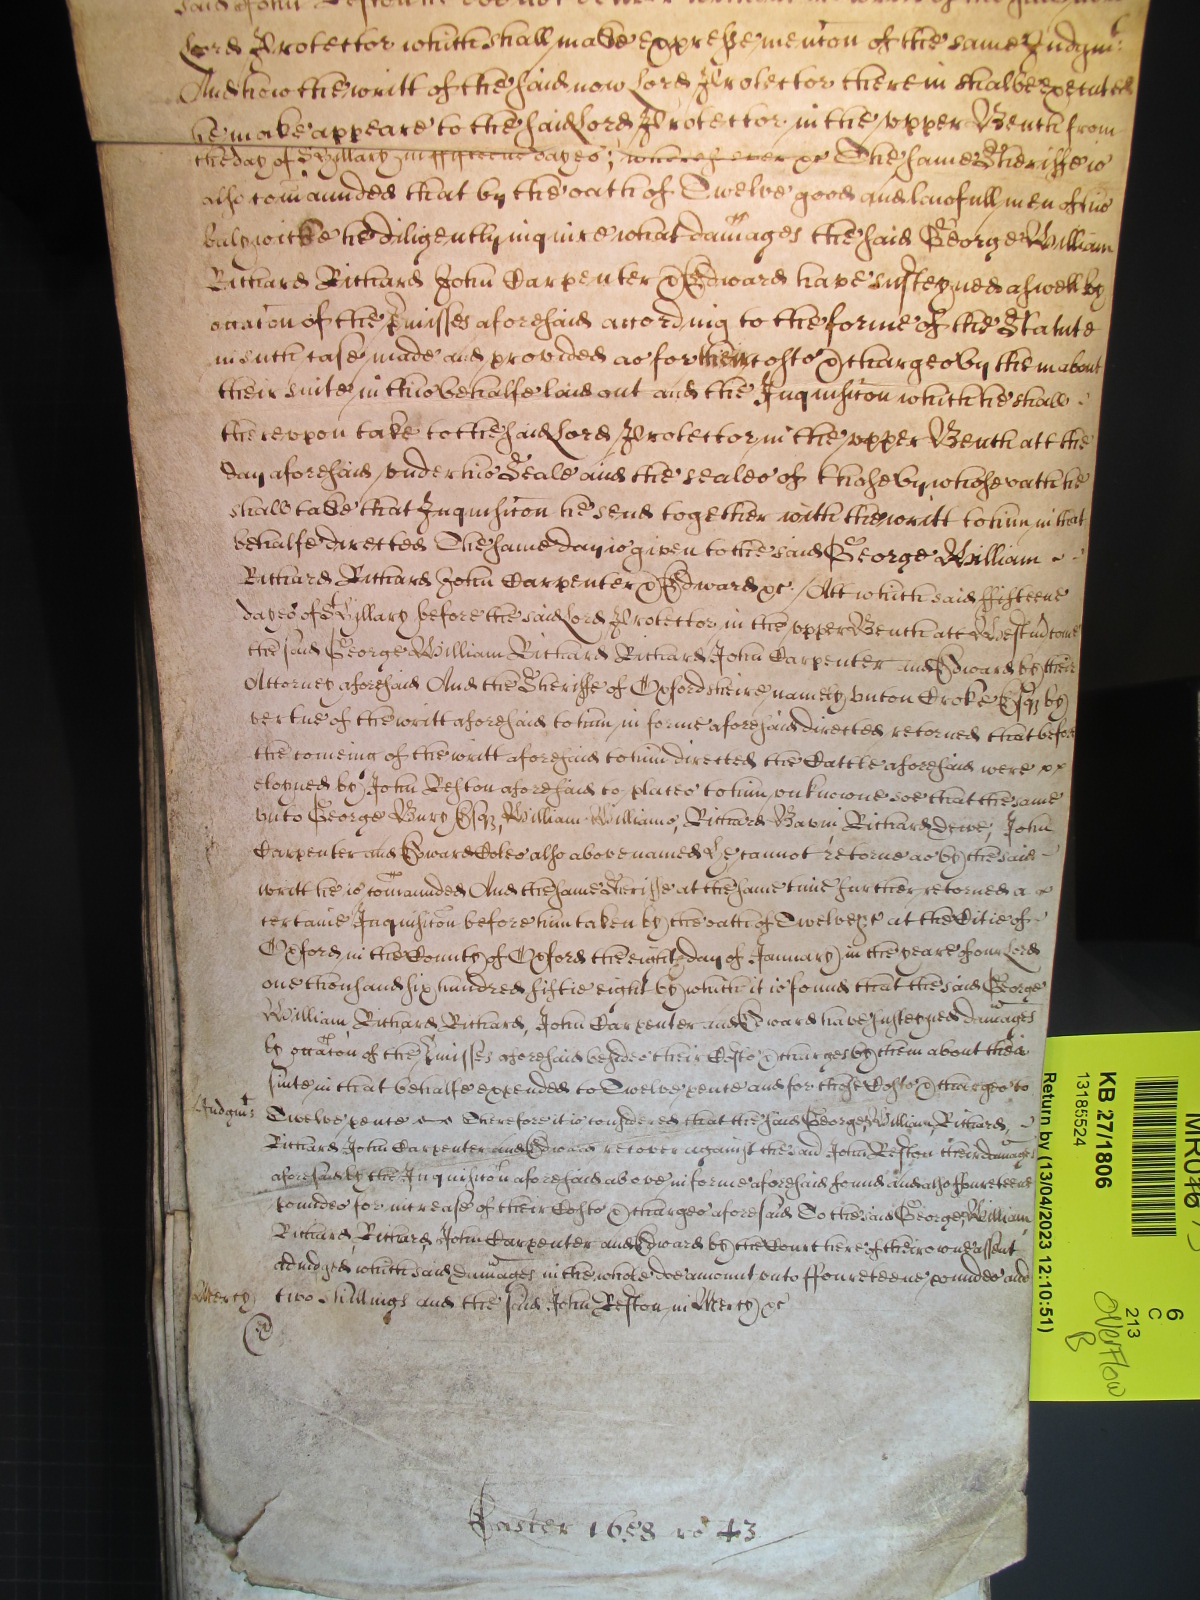 said John
Lord Protector which shall make expresse mencon of the same Judgmt:
And how the writt of the said now Lord Protector therein shalbe executed
he make appeare to the said Lord Protector in the upper Bench from
the day of St Hillary in fifteene dayes; wheresoever &c The same Sheriffe is
also comaunded that by the oath of Twelve good and lawfull men of his
balywicke he diligently inquire what damages the said George William
Richard Richard John Carpenter & Edward have susteyned aswell by
occacon of the pmisses aforesaid according to the forme of the Statute
in such case made and provided as for their costs & charges by them about
their suite in this behalfe laid out and the Inquisicon which he shall
thereupon take to the said Lord Protector in the upper Bench att the
day aforesaid under his Seale and the seales of those by whose oath he
shall take that Inquisicon he send together with the writt to him in that
behalfe directed The same day is given to the said George William
Richard Richard John Carpenter & Edward &c. Att which said fifteene
dayes of St Hillary before the said Lord Protector in the upper Bench att Westm come
the said George William Richard Richard John Carpenter and Edward by their
Attorney aforesaid And the Sheriffe of Oxfordsheire namely Unton Croke Esqz by
vertue of the writt aforesaid to him in forme aforesaid directed returned that before
the comeing of the writt aforesaid to him directed the Cattle aforesaid were
eloyned by John Reston aforesaid to places to him unknowne soe that the same
unto George Bury Esqz, William Williams, Richard Bavin Richard Dewe, John
Carpenter and Edward Coles also above named he cannot retorne as by the said
writt he is comaunded And the same Sheriffe at the same time further returned a
certaine Inquisicon before him taken by the oath of Twelve &c at the Citie of
Oxford in the County of Oxford the eight day of January in the yeare of our Lord
one thousand six hundred fiftie eight by which it is found that the said George
William, Richard, Richard, John Carpenter and Edward have susteyned damages
by occacon of the pmisses aforesaid besides their Costs & charges by them about their
suite in that behalfe expended to Twelve pence and for those Costs & charges to
Judgmt Twelve pence Therefore it is considered that the said George, William, Richard,
Richard John Carpenter and Edward recover against the said John Reston their damages
aforesaid by the Inquisicon aforesaid above in forme aforesaid found and also fourteene
poundes for increase of their Costs & charges aforesaid To the said George, William
Richard, Richard, John Carpenter and Edward by the Court here of their owne assent
adiudged which said damages in the whole doe amount unto ffourteene poundes and
Mercy two shillings and the said John Reston in Mercy &c
Easter 1658 ro 43
MR046
6
C
213
Overflow
B
KB 27/1806
13185524
Return by (13/04/2023 12:10:51)